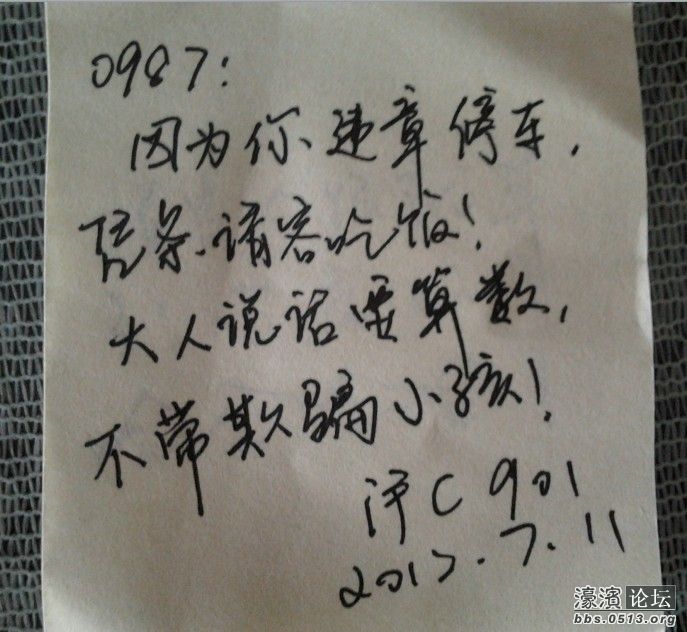 0987:
因为你违章停车,
请客吃饭!
大人说话要算数,
不带欺骗小孩!
沪C 901
7.11
濠滨论坛
bbs.0513.org